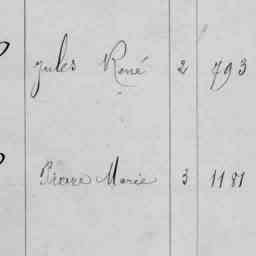 Jules René 2 793
Pierre Marie 3 1181